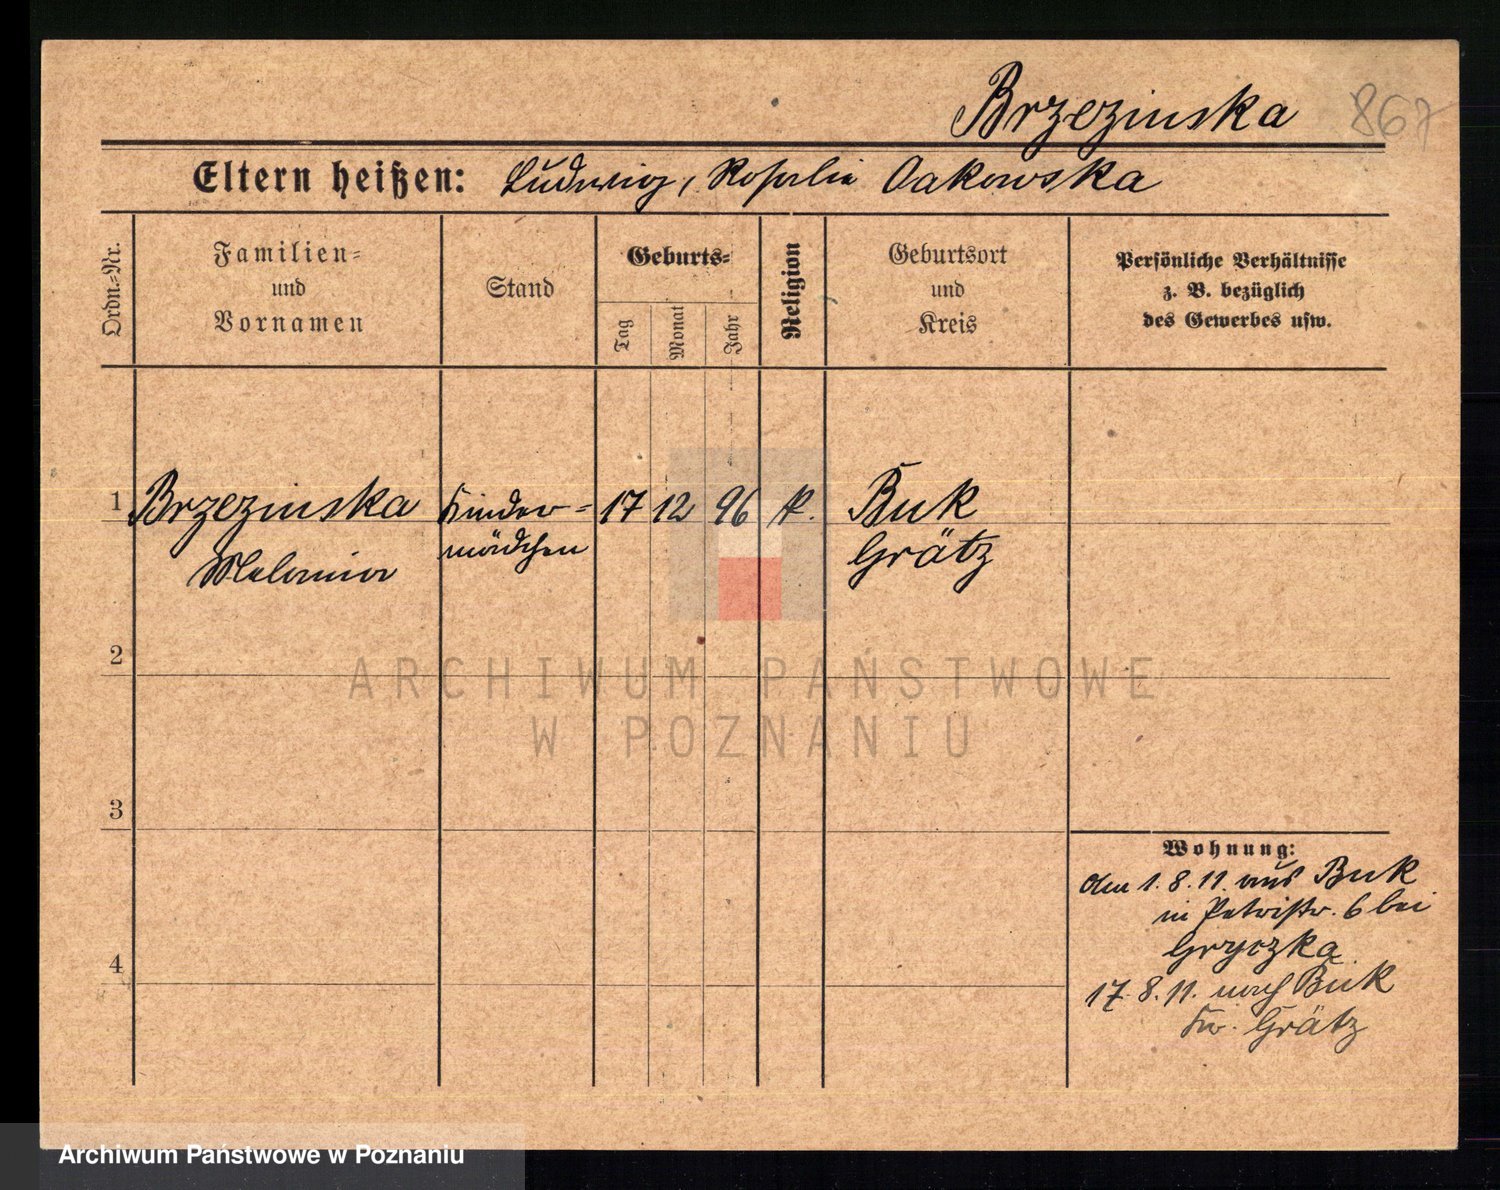 Brzezinska 867
Eltern heißen: Ludwig, Rosalie Cakowska
Ordn.=Nr.
Familien=
und
Vornamen
Stand
Geburts=
Tag
Monat
Jahr
Religion
Geburtsort
und
Kreis
Persönliche Verhältnisse
z. B. bezüglich
des Gewerbes usw.
1 Brzezinska Kinder= 17 12 96 k. Buk
Melania mädchen Grätz
2
ARCHIWUM PAŃSTWOWE
W POZNANIU
3
Wohnung:
den 1.8.11. aus Buk
in Petristr. 6 bei
Gryczka
4
17.8.11. nach Buk
Kr. Grätz
Archiwum Państwowe w Poznaniu